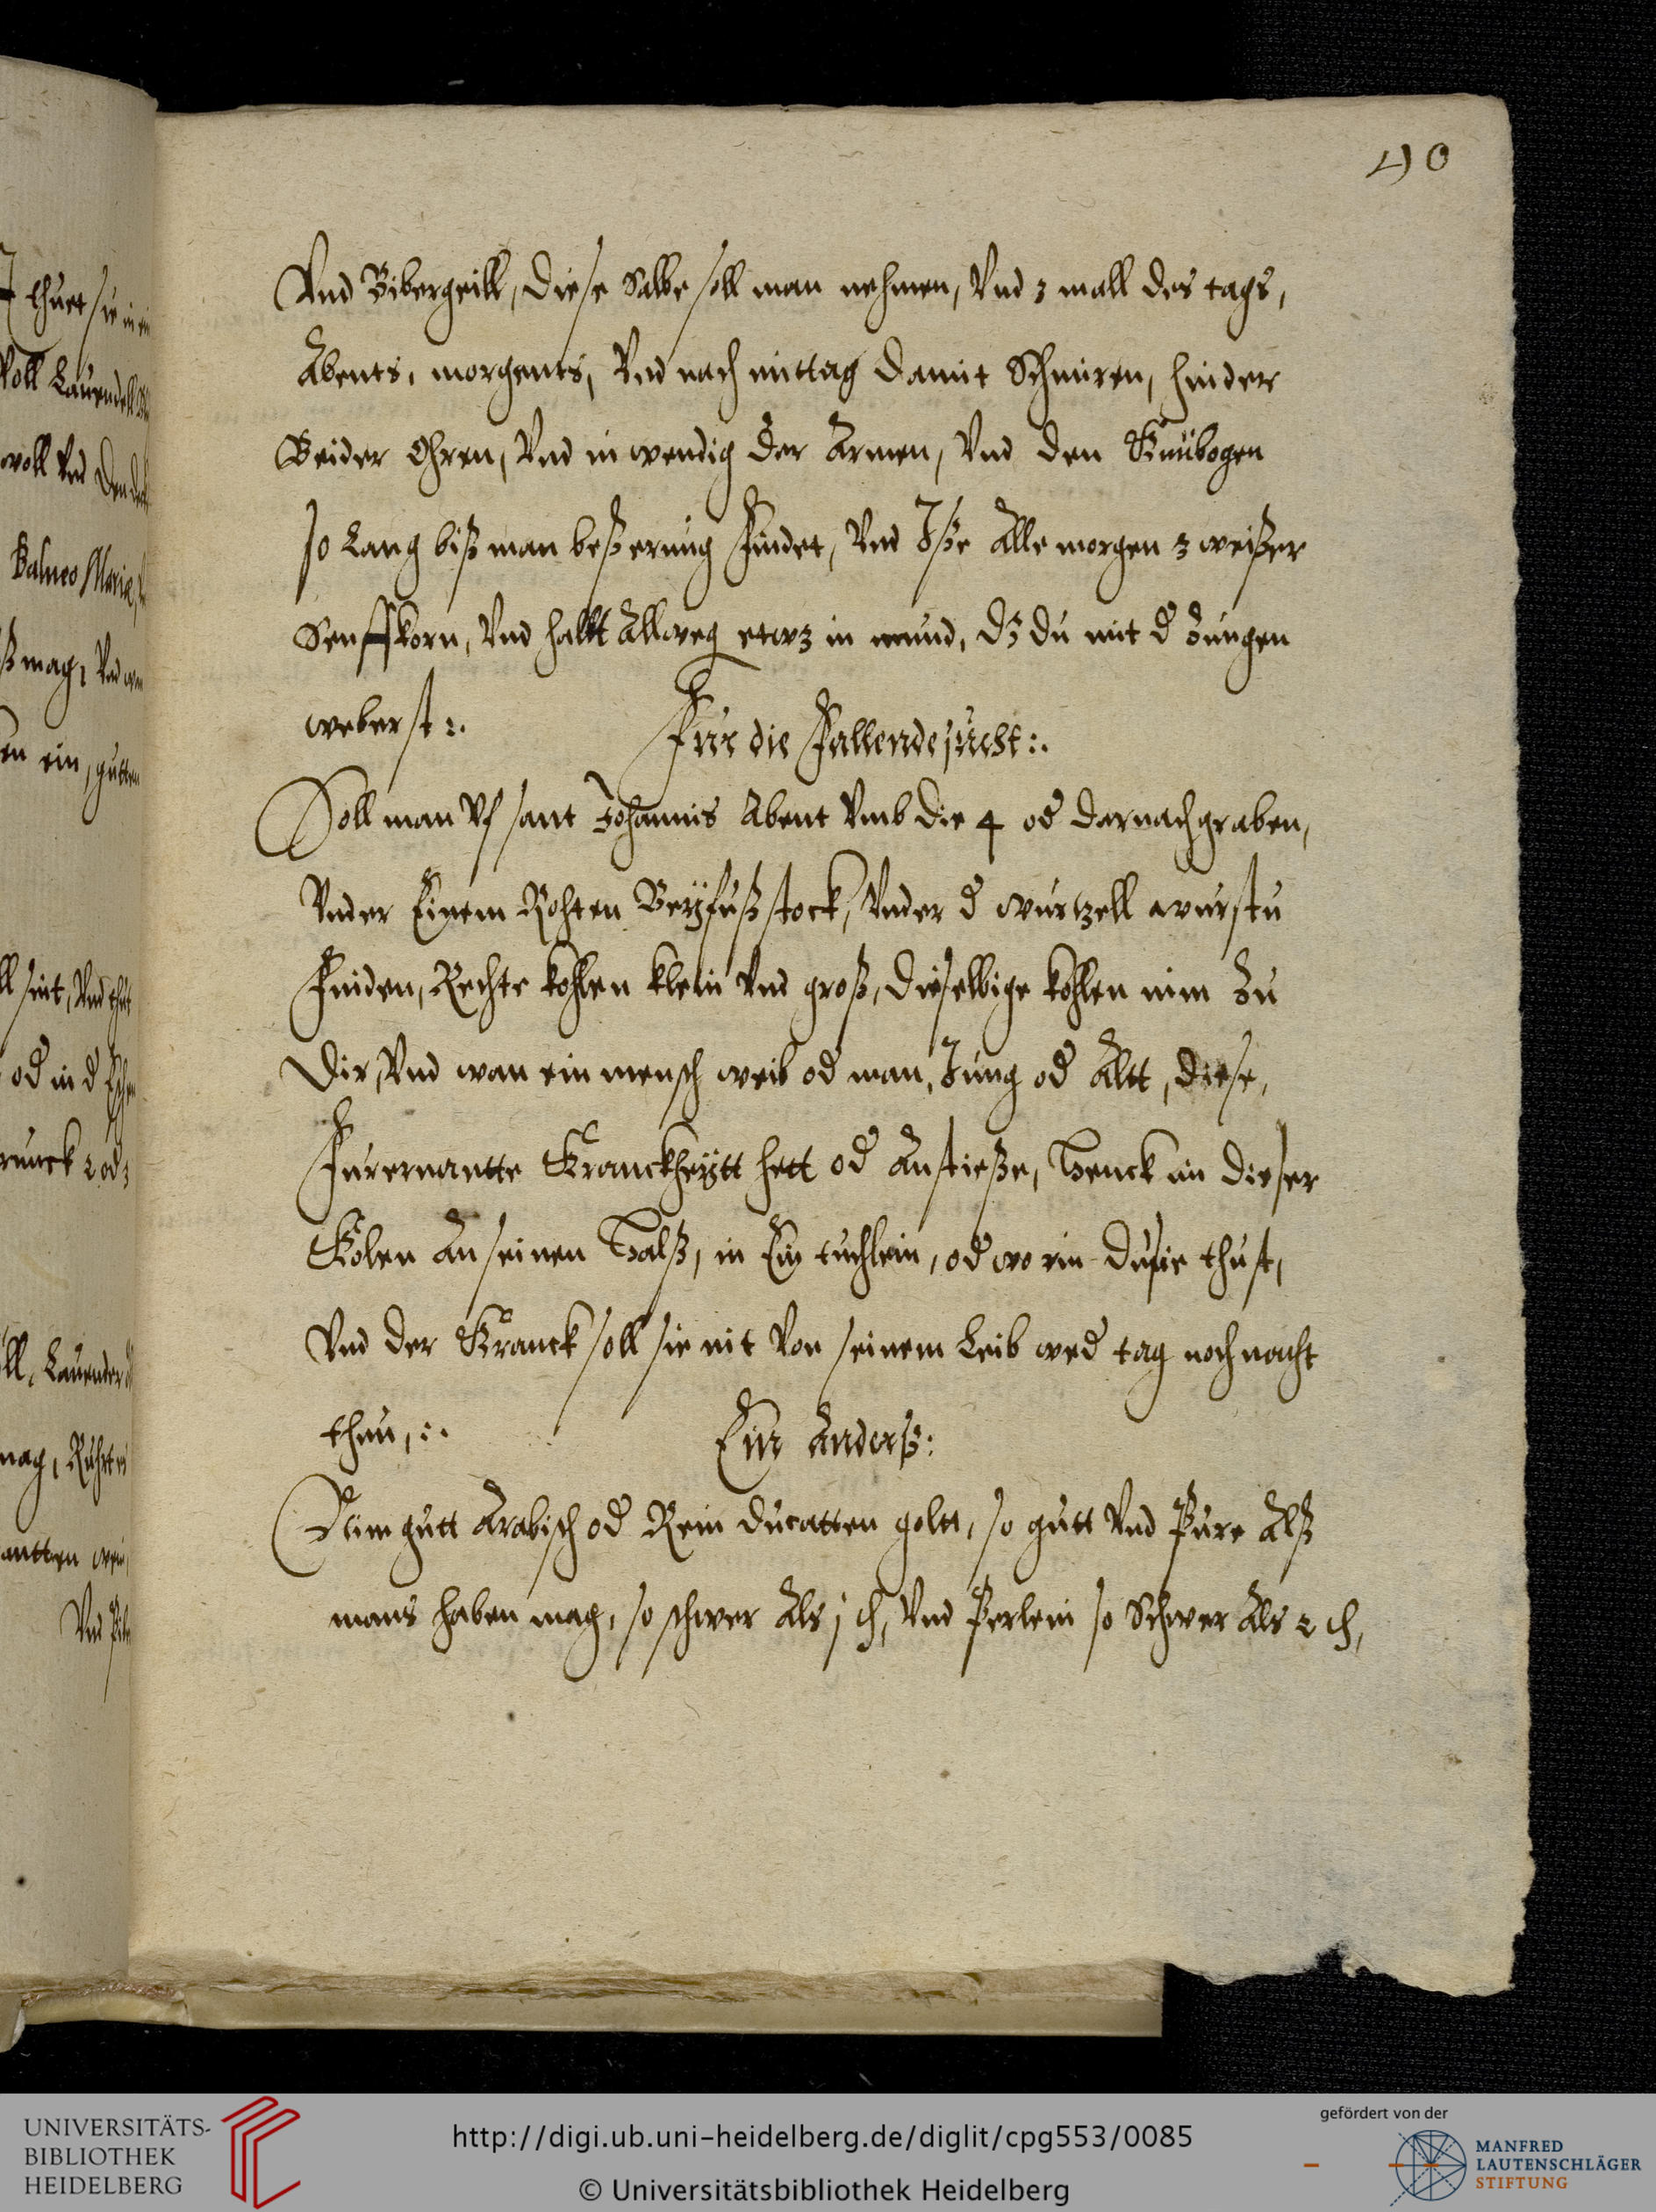 40
Vnd Bibergeill, diese Salbe soll man nehmen, Vnd 3 mall des tags,
Abents, morgents, Vnd nach mittag damit Schmiren, hinder
Beider Ohren, Vnd in wendig der Armen, Vnd den Knübogen
so Lang biß man beßerung findet, Vnd Jße Alle morgen 3 weißer
Senffkorn, Vnd hallt Allweg etwz in mund, dz du mit d Zungen
weberst :.
Fur die Fallendesucht :.
Soll man Vf sant Johannis Abent Vmb die 4 od darnach graben,
Vnder Einem Rohten Beÿfuß stock, Vnder d wurtzell wurstu
Finden, Rechte kohlen klein Vnd groß, dieselbige kohlen nim Zu
dir, Vnd wan ein mensch weib od man, Jung od Altt, diese,
Furernantte Kranckheÿtt hett od Anstieße, Henck im dieser
Kolen An seinen Halß, in Ein tuchlein, od wo rin du sie thust,
Vnd der Kranck soll sie nit Von seinem Leib wed tag noch nacht
thun, :.
Ein Anderß :
Nim gutt Arabisch od Rein ducatten goltt, so gutt Vnd Pure Alß
mans haben mag, so schwer Als j ch, Vnd Perlein so Schwer Als 2 ch,
thuet sie in ein
Voll Lauendell
woll Vnd den
Balneo Mariæ,
ß mag, Vnd
en ein, gutten
ll sint, Vnd thut
od in d
runck 2 od 3
ll, Lauender
mag, Ruhrt es
antten wein
Vnd
UNIVERSITÄTS-
BIBLIOTHEK
HEIDELBERG
http://digi.ub.uni-heidelberg.de/diglit/cpg553/0085
© Universitätsbibliothek Heidelberg
gefördert von der
MANFRED
LAUTENSCHLÄGER
STIFTUNG